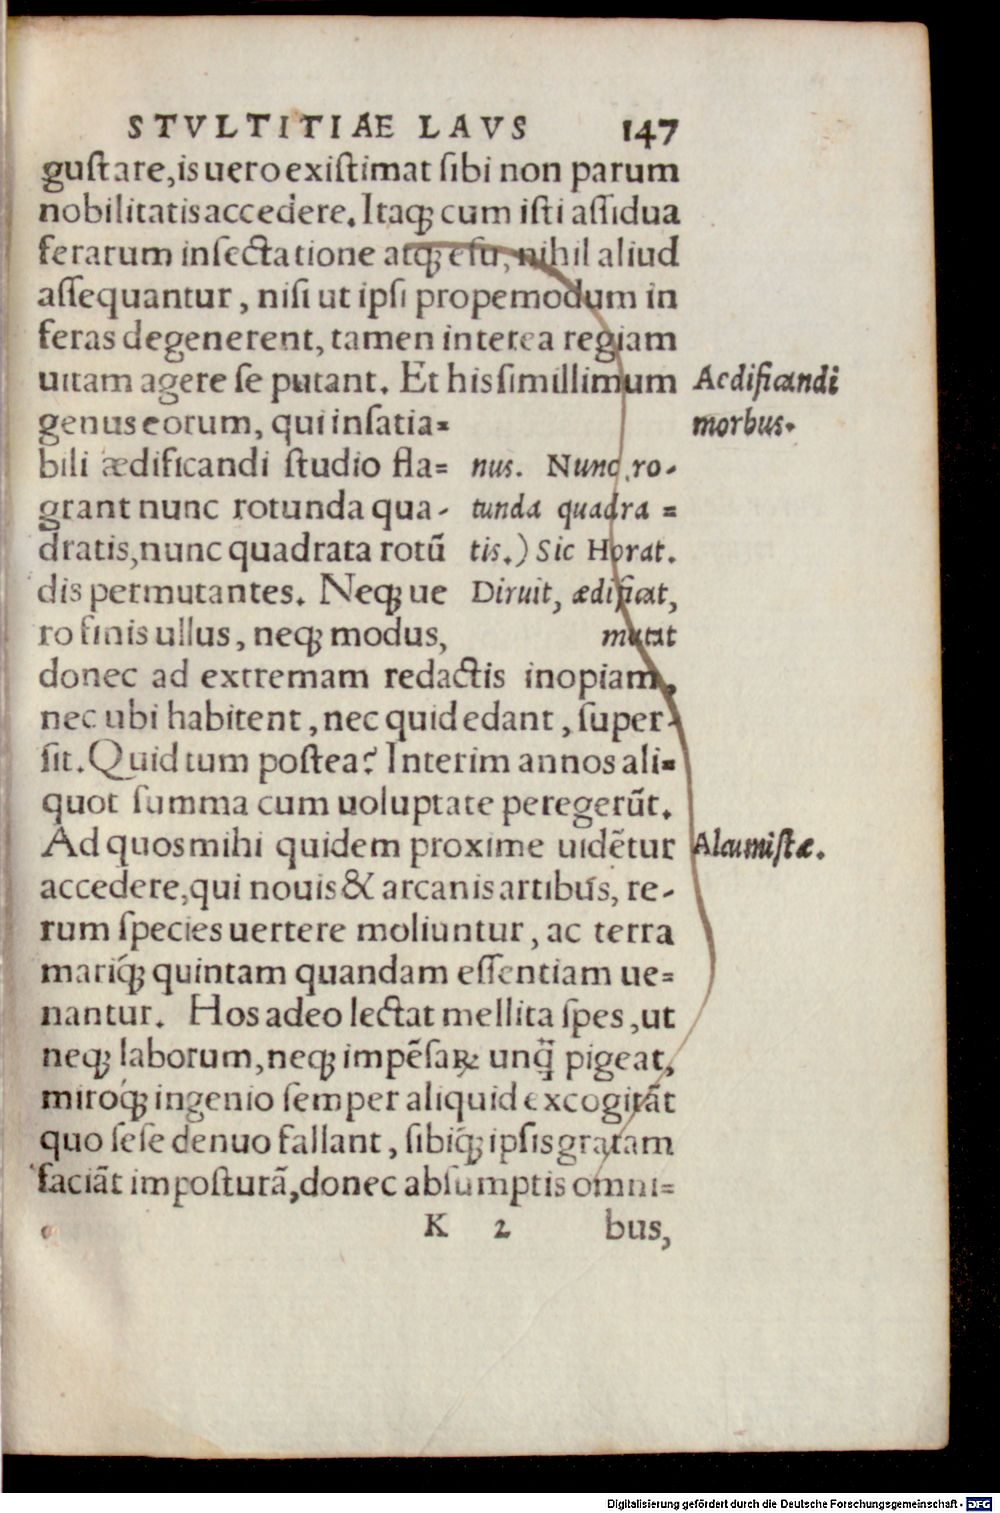 STVLTITIAE LAVS 147
guſtare,is uero exiſtimat ſibi non parum
nobilitatis accedere. Itaqꝫ cum iſti aſſidua
ferarum inſectatione atqꝫ eſu, nihil aliud
aſſequantur, niſi ut ipſi propemodum in
feras degenerent, tamen interea regiam
uitam agere ſe putant. Et his ſimillimum
genus eorum, qui inſatia=
bili ædificandi ſtudio fla=
grant nunc rotunda qua-
dratis,nunc quadrata rotū
dis permutantes. Neqꝫ ue
ro finis ullus, neqꝫ modus,
donec ad extremam redactis inopiam,
nec ubi habitent, nec quid edant, ſuper-
ſit. Quid tum poſtea? Interim annos ali=
quot ſumma cum uoluptate peregerūt.
Ad quos mihi quidem proxime uidētur
accedere,qui nouis & arcanis artibus, re-
rum ſpecies uertere moliuntur, ac terra
mariqꝫ́ quintam quandam eſſentiam ue=
nantur. Hos adeo lectat mellita ſpes, ut
neqꝫ laborum, neqꝫ impēſaꝝ unq̄ pigeat,
miroqꝫ́ ingenio ſemper aliquid excogitāt
quo ſeſe denuo fallant, ſibiqꝫ́ ipſis gratam
faciāt impoſturā,donec abſumptis omni=
K 2 bus,
nus. Nunc ro-
tunda quadra=
tis.) Sic Horat.
Diruit, ædificat,
mutat
Aedificandi
morbus.
Alcumiſtæ.
Digitalisierung gefördert durch die Deutsche Forschungsgemeinschaft - DFG